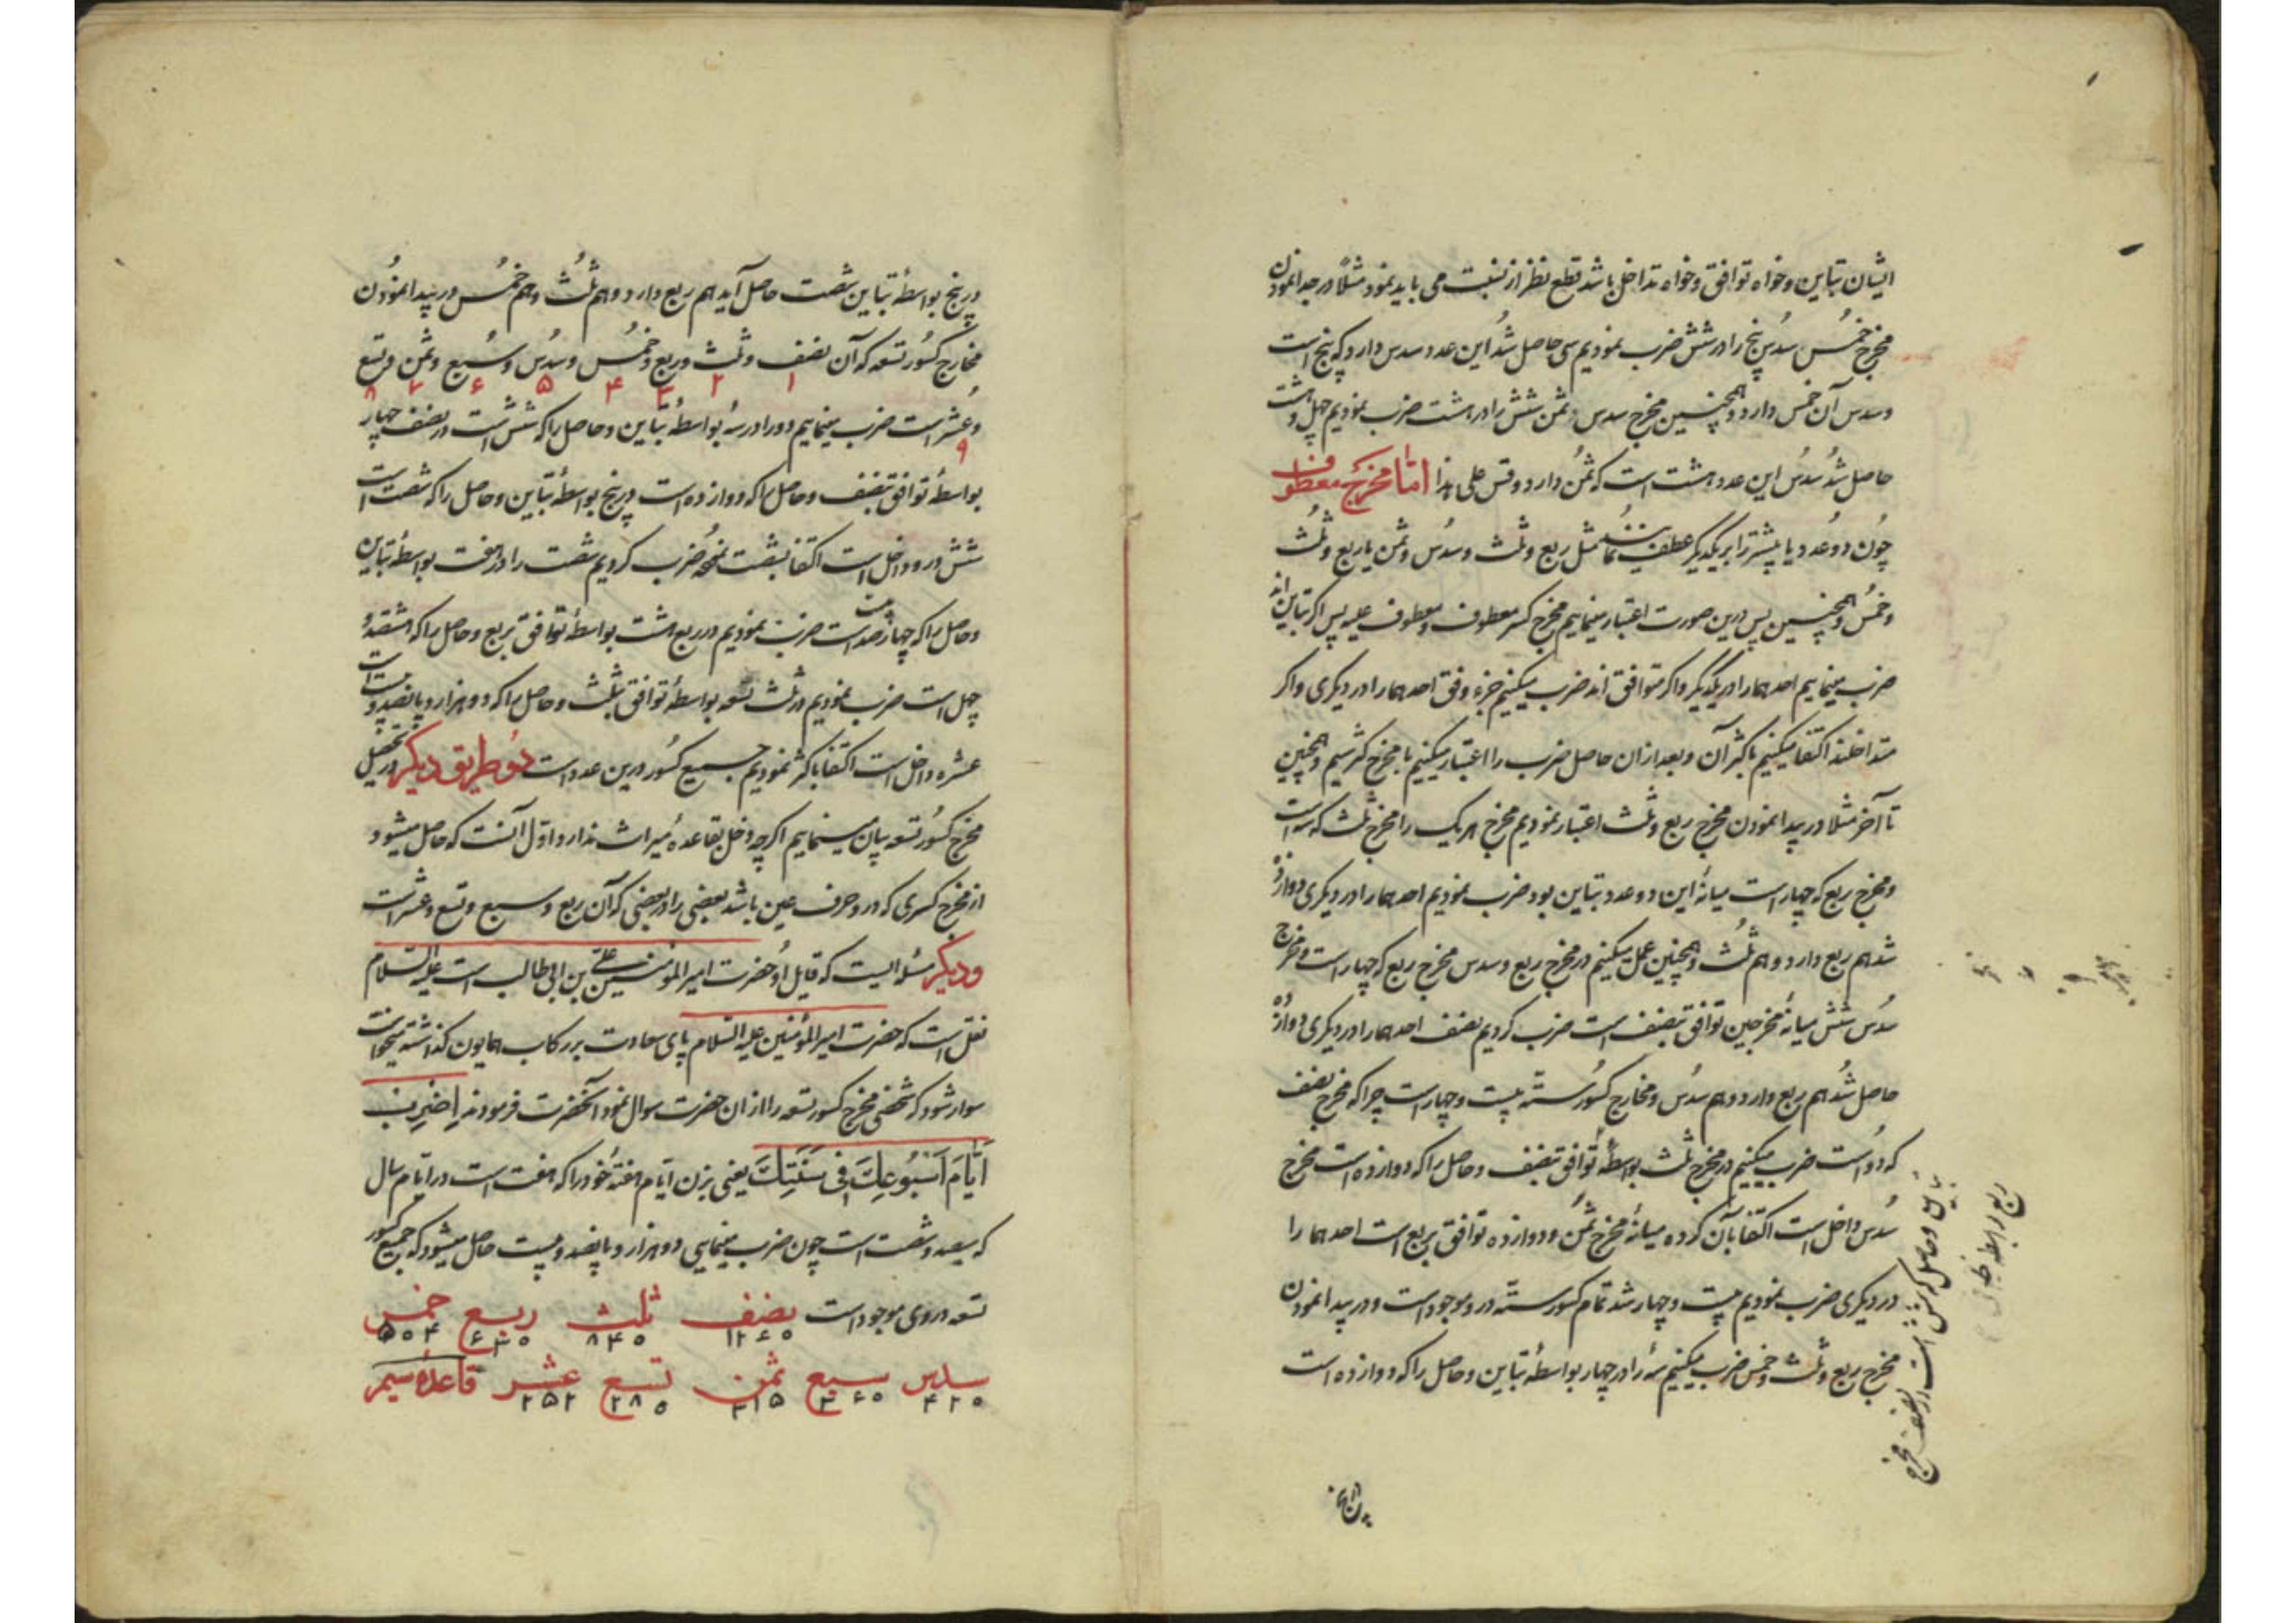 ایشان تباین و خواه توافق و خواه تداخل باشد قطع نظر از نسبت می باید نمود مثلا در پیدا نمودن
مخرج خمس سدس پنج را در شش ضرب نمودیم سی حاصل شد این عدد سدس دارد که پنج است
و سدس آن خمس دارد و همچنین مخرج سدس و ثمن شش را در هشت ضرب نمودیم چهل و هشت
حاصل شد سدس این عدد هشت است که ثمن دارد و قس علی هذا اما مخرج معطوف
چون دو عدد یا بیشتر را بر یکدیگر عطف نمائیم مثل ربع و ثلث و سدس و ثمن یا ربع و ثلث
و خمس و همچنین پس درین صورت اعتبار مینماییم مخرج کسر معطوف و معطوف علیه پس اگر تباین اند
ضرب مینماییم احدهما را در یکدیگر و اگر متوافق اند ضرب میکنیم جزء وفق احدهما را در دیگری و اگر
متداخلند اکتفا میکنیم باکثر آن و بعد از ان حاصل ضرب را اعتبار میکنیم با مخرج کسر سیم و همچنین
تا آخر مثلا در پیدا نمودن مخرج ربع و ثلث اعتبار نمودیم مخرج هر یک را مخرج ثلث که سه است
و مخرج ربع که چهار است میانه این دو عدد تباین بود ضرب نمودیم احدهما را در دیگری دوازده
شد هم ربع دارد و هم ثلث و همچنین عمل میکنیم در مخرج ربع و سدس مخرج ربع که چهار است و مخرج
سدس شش میانه مخرجین توافق بنصف است ضرب کردیم نصف احدهما را در دیگری دوازده
حاصل شد هم ربع دارد و هم سدس و مخارج کسور سته بیست و چهار است چرا که مخرج نصف
که دو است ضرب میکنیم در مخرج ثلث بواسطه توافق بنصف و حاصل را که دوازده است مخرج
سدس داخل است اکتفا بآن کرده میانه مخرج ثمن و دوازده توافق بربع است احدهما را
در دیگری ضرب نمودیم بیست و چهار شد تمام کسور سته درو موجود است و در پیدا نمودن
مخرج ربع و ثلث و خمس ضرب میکنیم سه را در چهار بواسطه تباین و حاصل را که دوازده است
بتباین و حاصل که شش است در نصف مخرج
ربع بواسطه
در پنج بواسطه تباین شصت حاصل آید هم ربع دارد و هم ثلث و هم خمس در پیدا نمودن
مخارج کسور تسعه که آن نصف و ثلث و ربع و خمس و سدس و سبع و ثمن و تسع
۱ ۲ ۳ ۴ ۵ ۶ ۷ ۸
و عشر است ضرب مینماییم دو را در سه بواسطه تباین و حاصل را که شش است در نصف چهار
۹
بواسطه توافق بنصف و حاصل را که دوازده است در پنج بواسطه تباین و حاصل را که شصت است
شش درو داخل است اکتفا بشصت نموده ضرب کردیم شصت را در هفت بواسطه تباین
و حاصل را که چهارصد و بیست است ضرب نمودیم در ربع هشت بواسطه توافق بربع و حاصل را که هشتصد و
چهل است ضرب نمودیم در ثلث تسعه بواسطه توافق بثلث و حاصل را که دو هزار و پانصد و بیست است
عشره داخل است اکتفا باکثر نمودیم جمیع کسور درین عدد است دو طریق دیگر در تحصیل
مخرج کسور تسعه بیان مینماییم اگرچه دخل بقاعده میراث ندارد اول آنست که حاصل میشود
از مخرج کسری که درو حرف عین باشد بعضی را در بعضی که آن ربع و سبع و تسع و عشر است
و دیگر مسئله ایست که قایل او حضرت امیر المؤمنین علی بن ابی طالب است علیه السلام
نقل است که حضرت امیر المؤمنین علیه السلام پای سعادت بر رکاب همایون گذاشته میخواست
سوار شود که شخصی مخرج کسور تسعه را از ان حضرت سوال نمود آنحضرت فرمودند اِضرب
اَیّامَ اَسبُوعِکَ فی سَنَتِکَ یعنی بزن ایام هفته خود را که هفت است در ایام سال
که سیصد و شصت است چون ضرب مینمایی دو هزار و پانصد و بیست حاصل میشود که جمیع کسور
تسعه در وی موجود است نصف ثلث ربع خمس
۱۲۶۰ ۸۴۰ ۶۳۰ ۵۰۴
سدس سبع ثمن تسع عشر قاعده سیم
۴۲۰ ۳۶۰ ۳۱۵ ۲۸۰ ۲۵۲